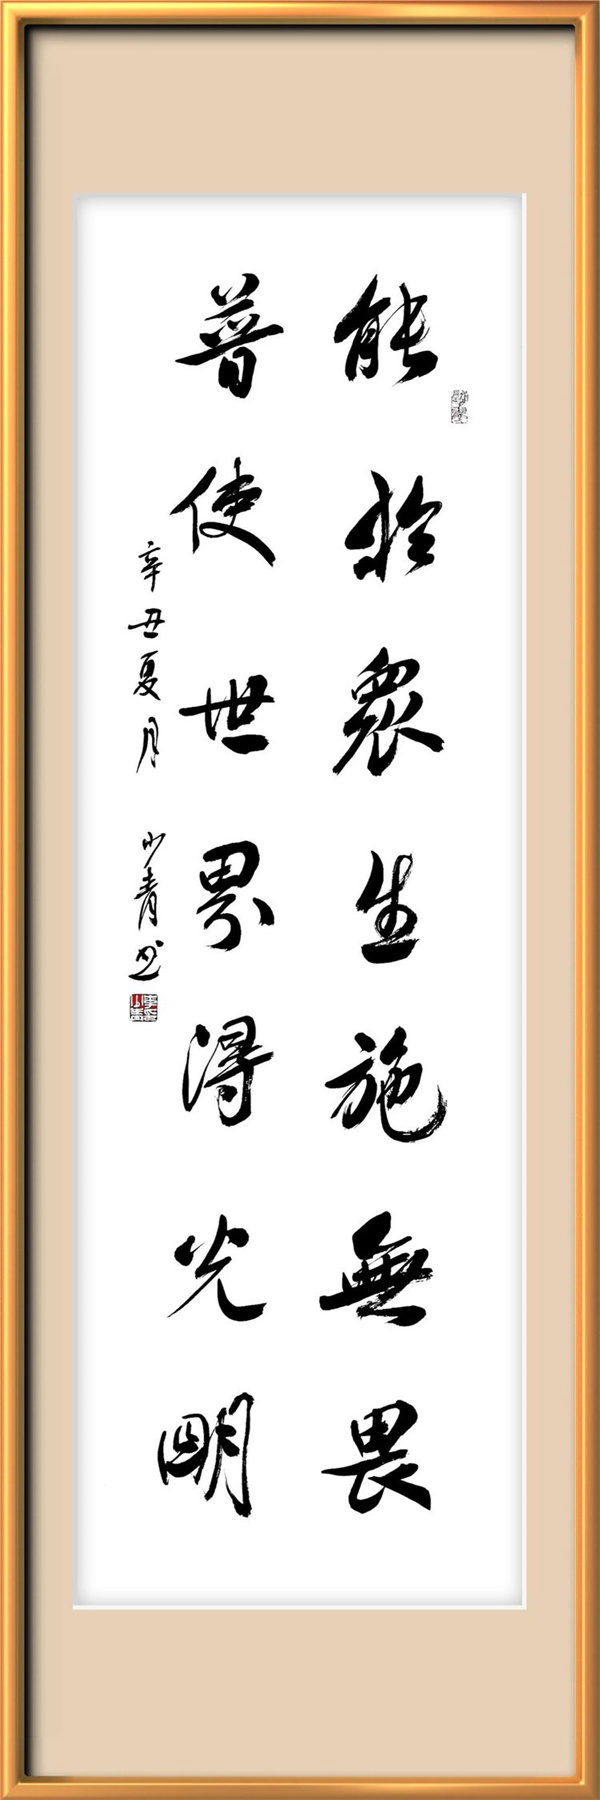 能於眾生施無畏
普使世界得光明
辛丑夏月 小青书